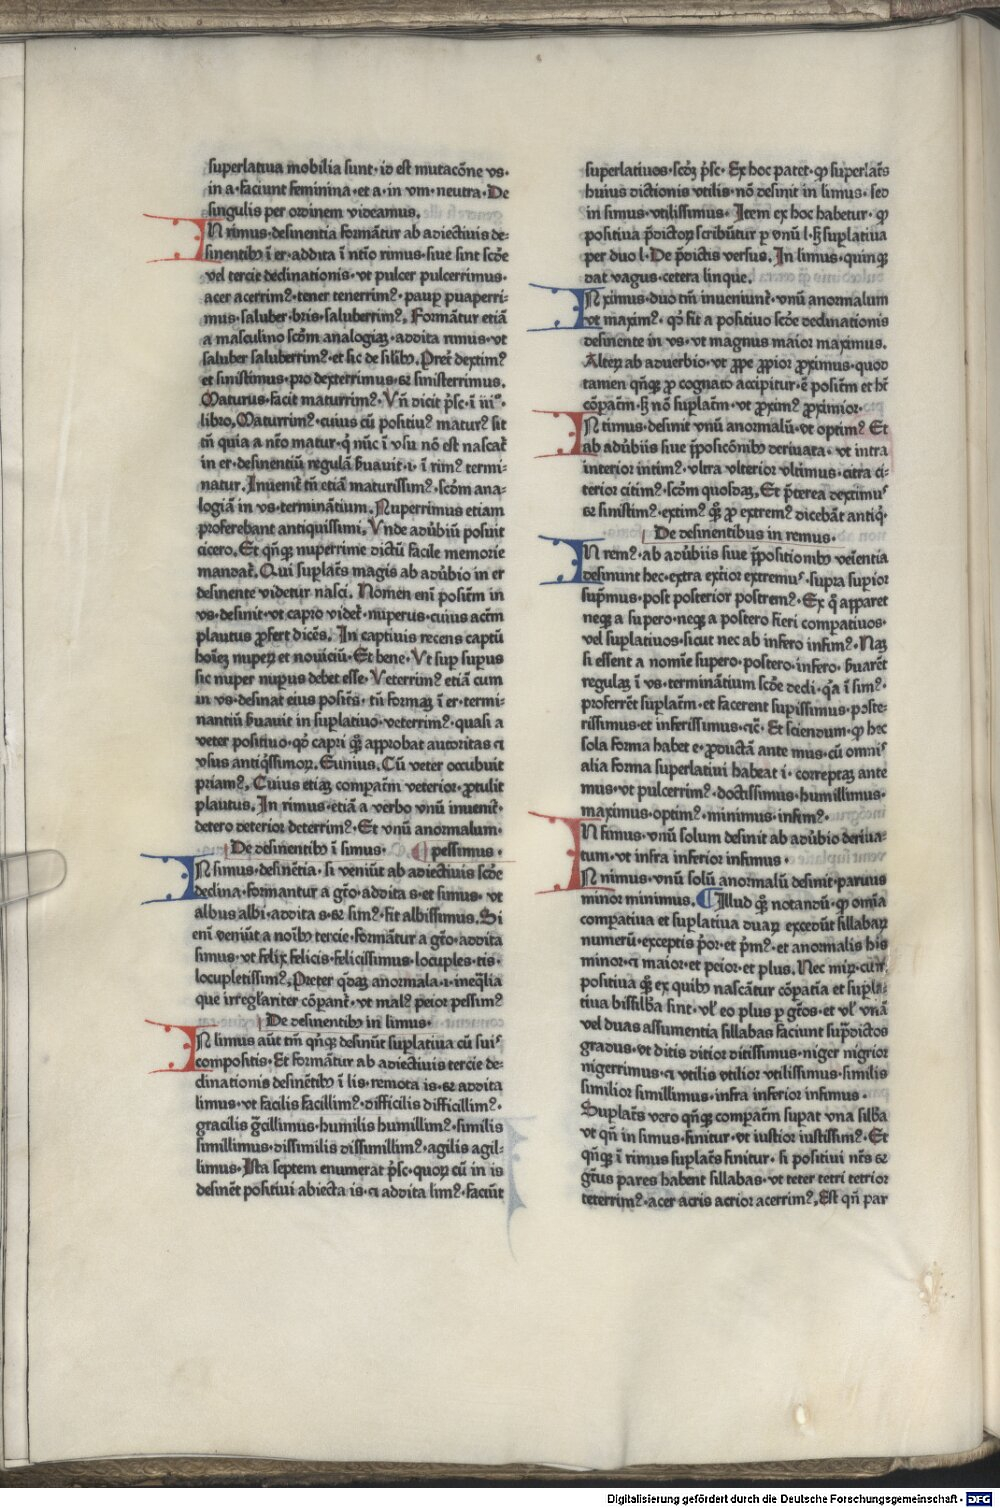 superlatiua mobilia sunt· id est mutacōne vs·
in a· faciunt feminina· et a· in vm· neutra· De
singulis per ordinem videamus.
IN rimus· desinentia formātur ab adiectiuis de-
sinentibꝫ ī er· addita ī ntīo rimus· siue sint scd̄e
vel tercie declinationis· vt pulcer pulcerrimus·
acer acerrimꝰ· tener tenerrimꝰ· paup puaperri-
mus· saluber· bris· saluberrimꝰ. Formātur etiā
a masculino scd̄m analogiaꝫ· addita rimus· vt
saluber saluberrimꝰ· et sic de silibꝫ. Pret dextimꝰ
et sinistimus· pro dexterrimus· et sinisterrimus.
Maturus· facit maturrimꝰ· Vn̄ dicit pˢc· ī iiiº·
libro, Maturrimꝰ· cuius cū positiuꝰ maturꝰ sit
tn̄ quia a nt̄o matur· q nūc ī vsu nō est nascat
in er· desinentiū regulā ẜuauit· i· ī rimꝰ termi-
natur. Inuenit tn̄ etiā maturissimꝰ· scd̄m ana-
logiā in vs· terminātium. Nuperrimus etiam
proferebant antiquissimi. Vnde aduḃiū posuit
cicero. Et qn̄qꝫ nuperrime dictū facile memorie
mandat. Qui suplats magis ab aduḃio in er
desinente videtur nasci. Nomen eni positm in
vs· desinit· vt caprio videt· nuperus· cuius actm
plautus ꝓfert dicēs. In captiuis recens captū
hoīeꝫ nuperꝫ et nouiciū· Et bene· Vt sup supus
sic nuper nupus debet esse· Veterrimꝰ etiā cum
in vs· desinat eius posits· tn̄ formaꝫ ī er· termi-
nantiū ẜuauit in suplatiuo· veterrimꝰ· quasi a
veter positiuo· qd̄ capri qꝫ approbat autoritas ⁊
vsus antiqissimoꝝ. Ennius. Cū veter occubuit
priamꝰ. Cuius etiaꝫ compatm veterior· ꝓtulit
plautus. In rimus· etiā a verbo vnū inuenit·
detero deterior deterrimꝰ· Et vnū anormalum·
De desinentibꝫ ī simus· ¶ pessimus·
IN simus· desinētia· si veniūt ab adiectiuis scd̄e
declina· formantur a gtō· addita s· et simus· vt
albus albi· addita s· et simꝰ· fit albissimus. Si
eni veniūt a noībꝫ tercie· formātur a gtō· addita
simus· vt felix felicis· felicissimus· locuples· tis·
locupletissimꝰ. Preter qdaꝫ anormala· i· ineqlia
que irreglariter cōpant· vt malꝰ peior pessimꝰ
De desinentibꝫ in limus·
IN limus aūt tm̄ qnꝫ desinūt suplatiua cū suiˢ
compositis· Et formātur ab adiectiuis tercie de-
clinationis desinētibꝫ ī lis· remota is· et addita
limus· vt facilis facillimꝰ· difficilis difficillimꝰ·
gracilis gcillimus· humilis humillimꝰ· similis
simillimus· dissimilis dissimillimꝰ· agilis agil-
limus· Ista septem enumerat pˢc· quoꝝ cū in is
desinēt positiui abiecta is· ⁊ addita limꝰ· faciūt
superlatiuos· scd̄ꝫ pˢc· Ex hoc patet· ꝙ superlats
huius dictionis vtilis· nō desinit in limus· sed
in simus· vtilissimus· Item ex hoc habetur· ꝙ
positiua pdictoꝝ scribūtur p vnū l· hꝫ suplatiua
per duo l· De pdictis versus. In limus· quinqꝫ
dat vagus· cetera linque.
IN ximus· duo tm̄ inueniunt· vnū anormalum
vt maximꝰ· qd̄ fit a positiuo scd̄e declinationis
desinente in vs· vt magnus maior maximus.
Alterꝫ ab aduerbio· vt ꝓpe ꝓpior ꝓximus· quod
tamen qn̄qꝫ ꝓ cognato accipitur· ē positm et ht
cōpatm· hꝫ nō suplatm· vt ꝓximꝰ ꝓximior·
IN timus· desinit vnū anormalū· vt optimꝰ Et
ab aduḃiis siue ꝓposicōnibꝫ deriuata· vt intra
interior intimꝰ· vltra vlterior vltimus· citra ci-
terior citimꝰ· scd̄m quosdaꝫ. Et pterea dextimuˢ
et sinistimꝰ· extimꝰ qꝫ ꝓ extremꝰ dicebāt antiq·
De desinentibus in remus·
IN remꝰ· ab aduḃiis siue ꝓpositionibꝫ veientia
desinunt hec· extra extior extremiuˢ· supra supior
supmus· post posterior postremꝰ· Ex q apparet
neqꝫ a supero· neqꝫ a postero fieri compatiuos·
vel suplatiuos· sicut nec ab infero infimꝰ· Naꝫ
si essent a nomīe supero· postero· infero· ẜuarēt
regulaꝫ ī vs· terminātium scd̄e decli· qa ī simꝰ·
proferrēt suplatm· et facerent supissimus· poste-
rissimus· et inferissimus· ⁊c· Et sciendum· ꝙ hec
sola forma habet e· ꝓductā ante mus· cū omniˢ
alia forma superlatiui habeat i· correptaꝫ ante
mus· vt pulcerrimꝰ· doctissimus· humillimus·
maximus· optimꝰ· minimus· infimꝰ·
IN fimus· vnū solum desinit ab aduḃio deriua-
tum· vt infra inferior infimus·
IN nimus· vnū solū anormalū desinit· paruus
minor minimus. ¶ Illud qꝫ notandū· ꝙ omīa
compatiua et suplatiua duaꝝ excedūt sillabaꝝ
numerū· exceptis por· et pmꝰ· et anormalis his
minor· ⁊ maior· et peior· et plus. Nec mirꝫ· cum
positiua qꝫ ex quibꝫ nascātur cōpatia et supla-
tiua bissillḃa sint· vl eo plus p gtōs· et vl vnā
vel duas assumentia sillabas faciunt supdictos
gradus· vt ditis ditior ditissimus· niger nigrior
nigerrimus· ⁊ vtilis vtilior vtilissimus· similis
similior simillimus· infra inferior infimus·
Suplats vero qn̄qꝫ compatm supat vna sillḃa
vt qn̄ in simus· finitur· vt iustior iustissimꝰ· Et
qn̄qꝫ ī rimus suplats finitur· si positiui nts et
gtūs pares habent sillabas· vt teter tetri tetrior
teterrimꝰ· acer acris acrior acerrimꝰ. Est qn̄ par
Digitalisierung gefördert durch die Deutsche Forschungsgemeinschaft - DFG